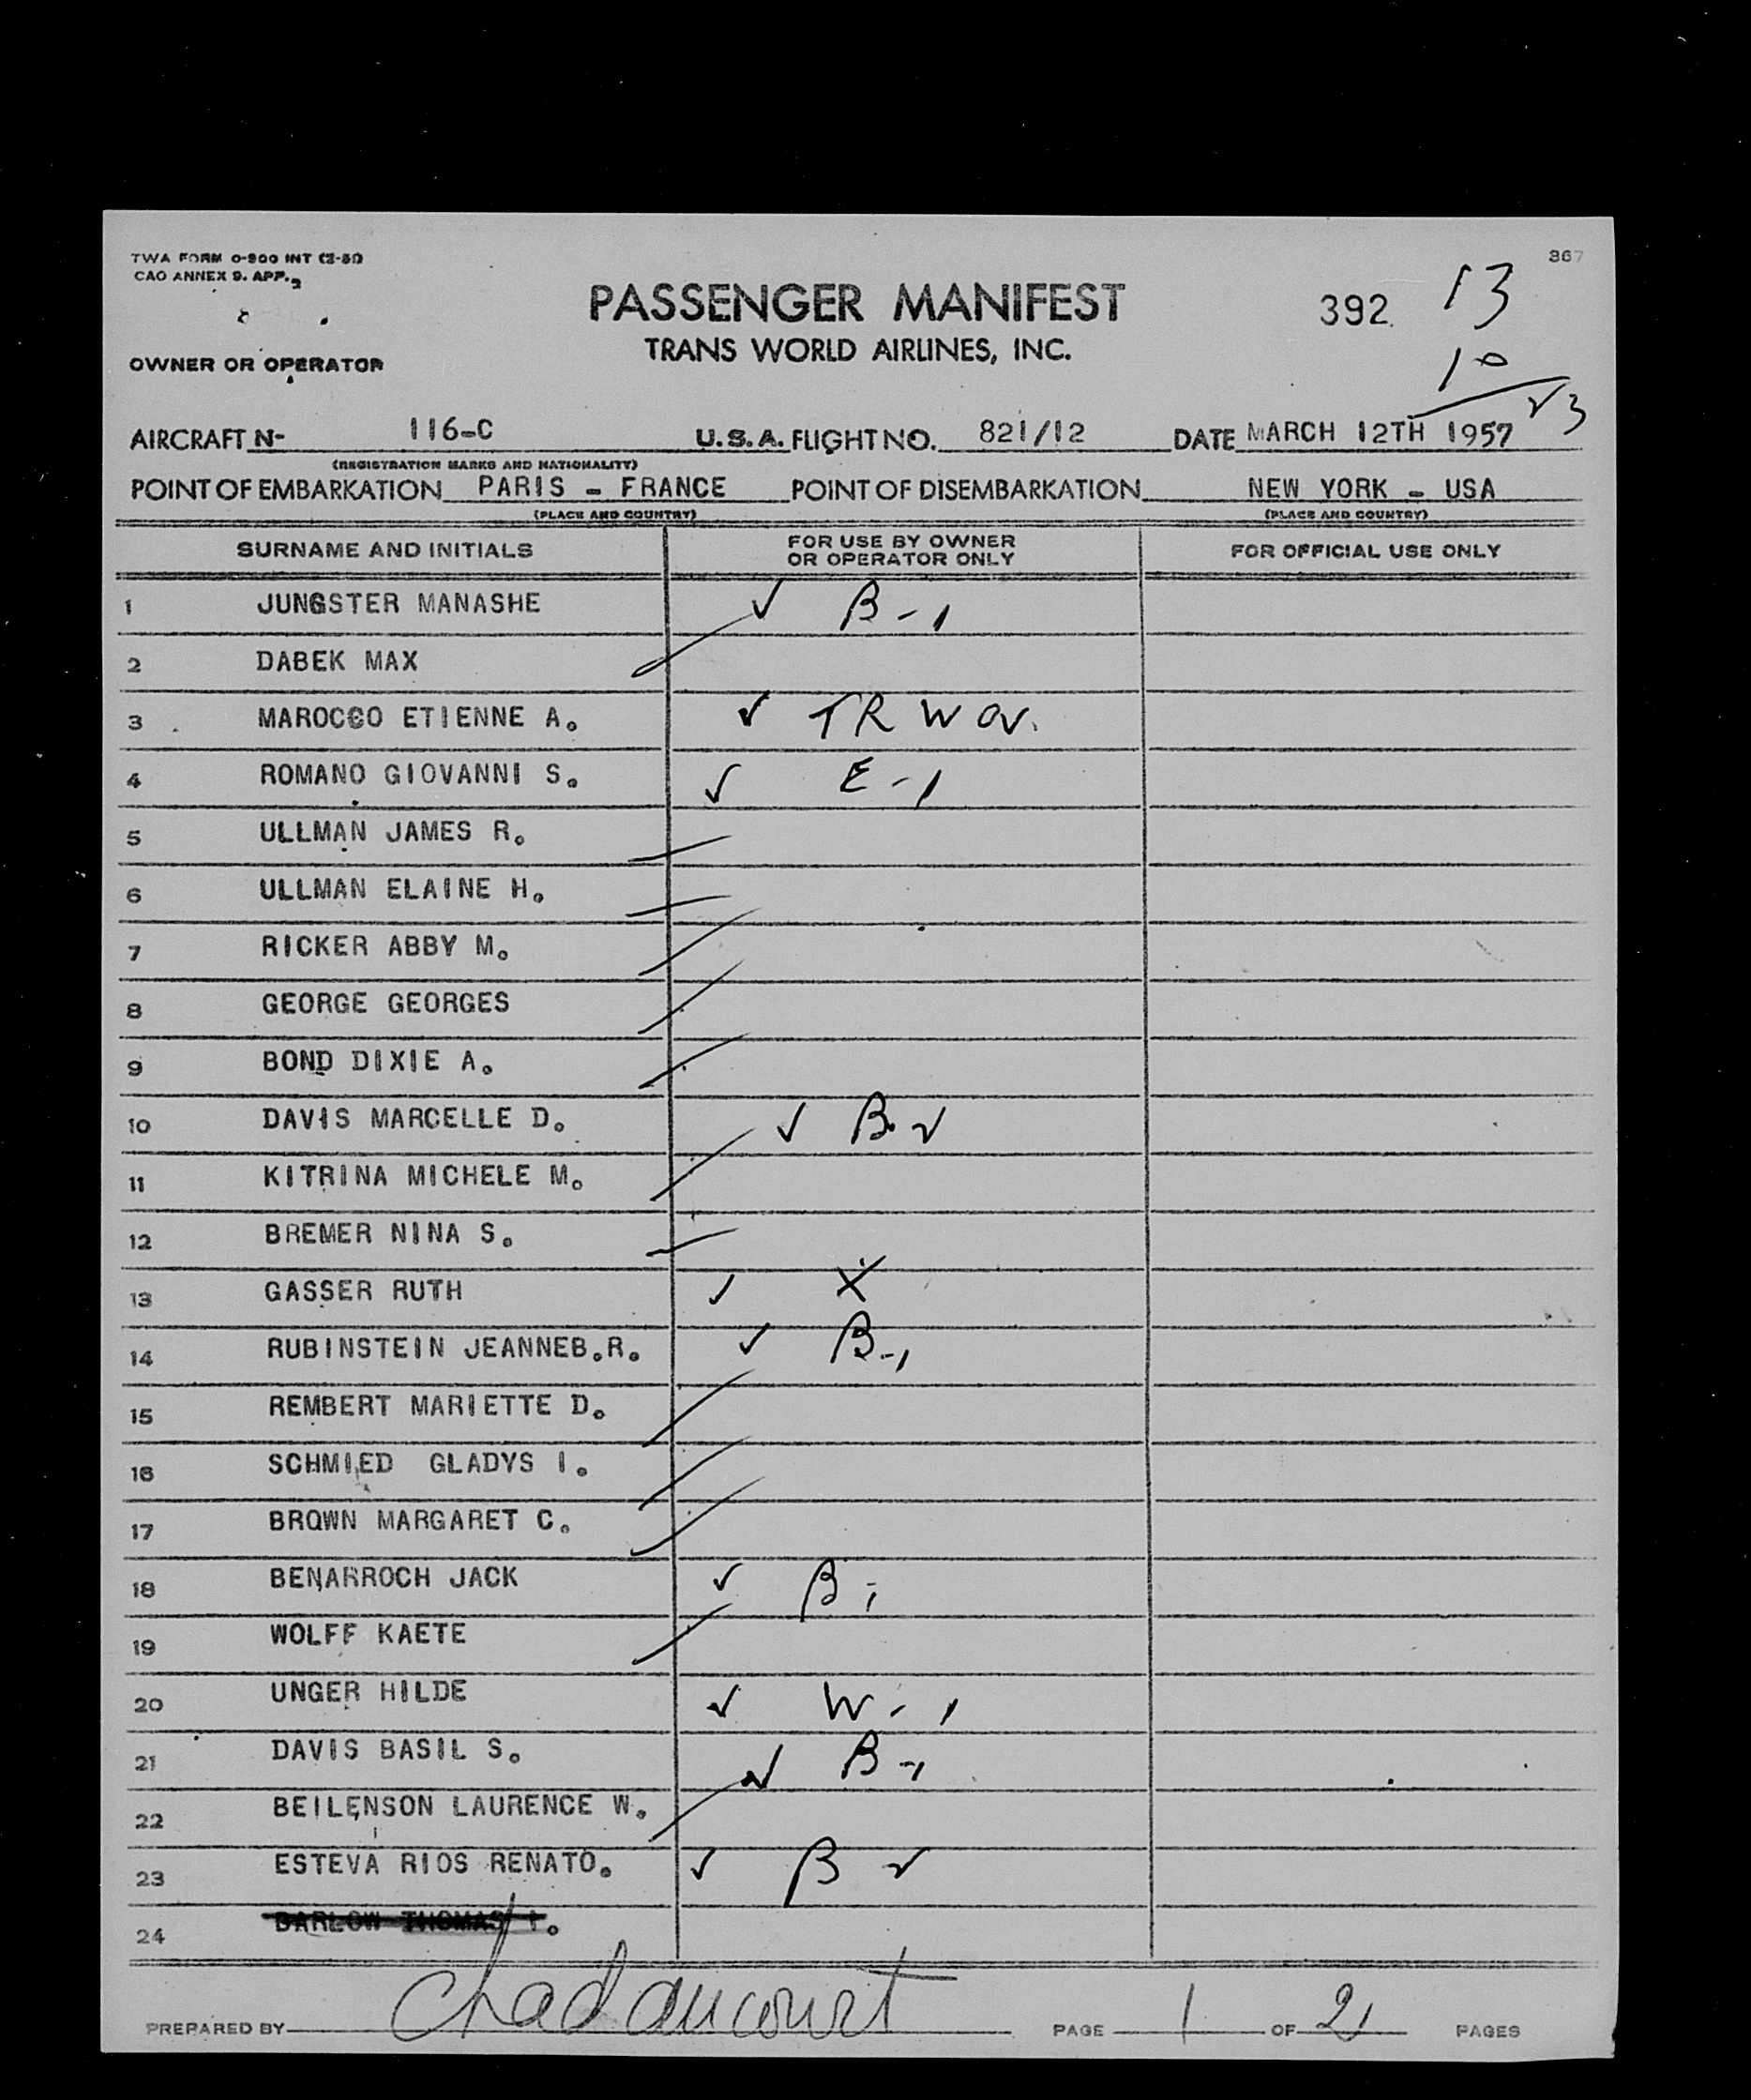 TWA FORM 0-900 INT (2-51)
CAO ANNEX 9. APP. 2
367
PASSENGER MANIFEST
392 13
TRANS WORLD AIRLINES, INC.
10
OWNER OR OPERATOR
23
AIRCRAFT N- 116-C U.S.A. FLIGHT NO. 821/12 DATE MARCH 12TH 1957
(REGISTRATION MARKS AND NATIONALITY)
POINT OF EMBARKATION PARIS - FRANCE POINT OF DISEMBARKATION NEW YORK - USA
(PLACE AND COUNTRY) (PLACE AND COUNTRY)
SURNAME AND INITIALS FOR USE BY OWNER OR OPERATOR ONLY FOR OFFICIAL USE ONLY
1 JUNGSTER MANASHE ✓ B-1
2 DABEK MAX
3 MAROCCO ETIENNE A. ✓ TR W OV.
4 ROMANO GIOVANNI S. ✓ E-1
5 ULLMAN JAMES R.
6 ULLMAN ELAINE H.
7 RICKER ABBY M.
8 GEORGE GEORGES
9 BOND DIXIE A.
10 DAVIS MARCELLE D. ✓ B-2
11 KITRINA MICHELE M.
12 BREMER NINA S.
13 GASSER RUTH ✓ X
14 RUBINSTEIN JEANNEB.R. ✓ B-1
15 REMBERT MARIETTE D.
16 SCHMIED GLADYS I.
17 BROWN MARGARET C.
18 BENARROCH JACK ✓ B-1
19 WOLFF KAETE
20 UNGER HILDE ✓ W-1
21 DAVIS BASIL S. ✓ B-1
22 BEILENSON LAURENCE W.
23 ESTEVA RIOS RENATO. ✓ B 2
24 BARLOW THOMAS
PREPARED BY Chadaucourt PAGE 1 OF 2 PAGES